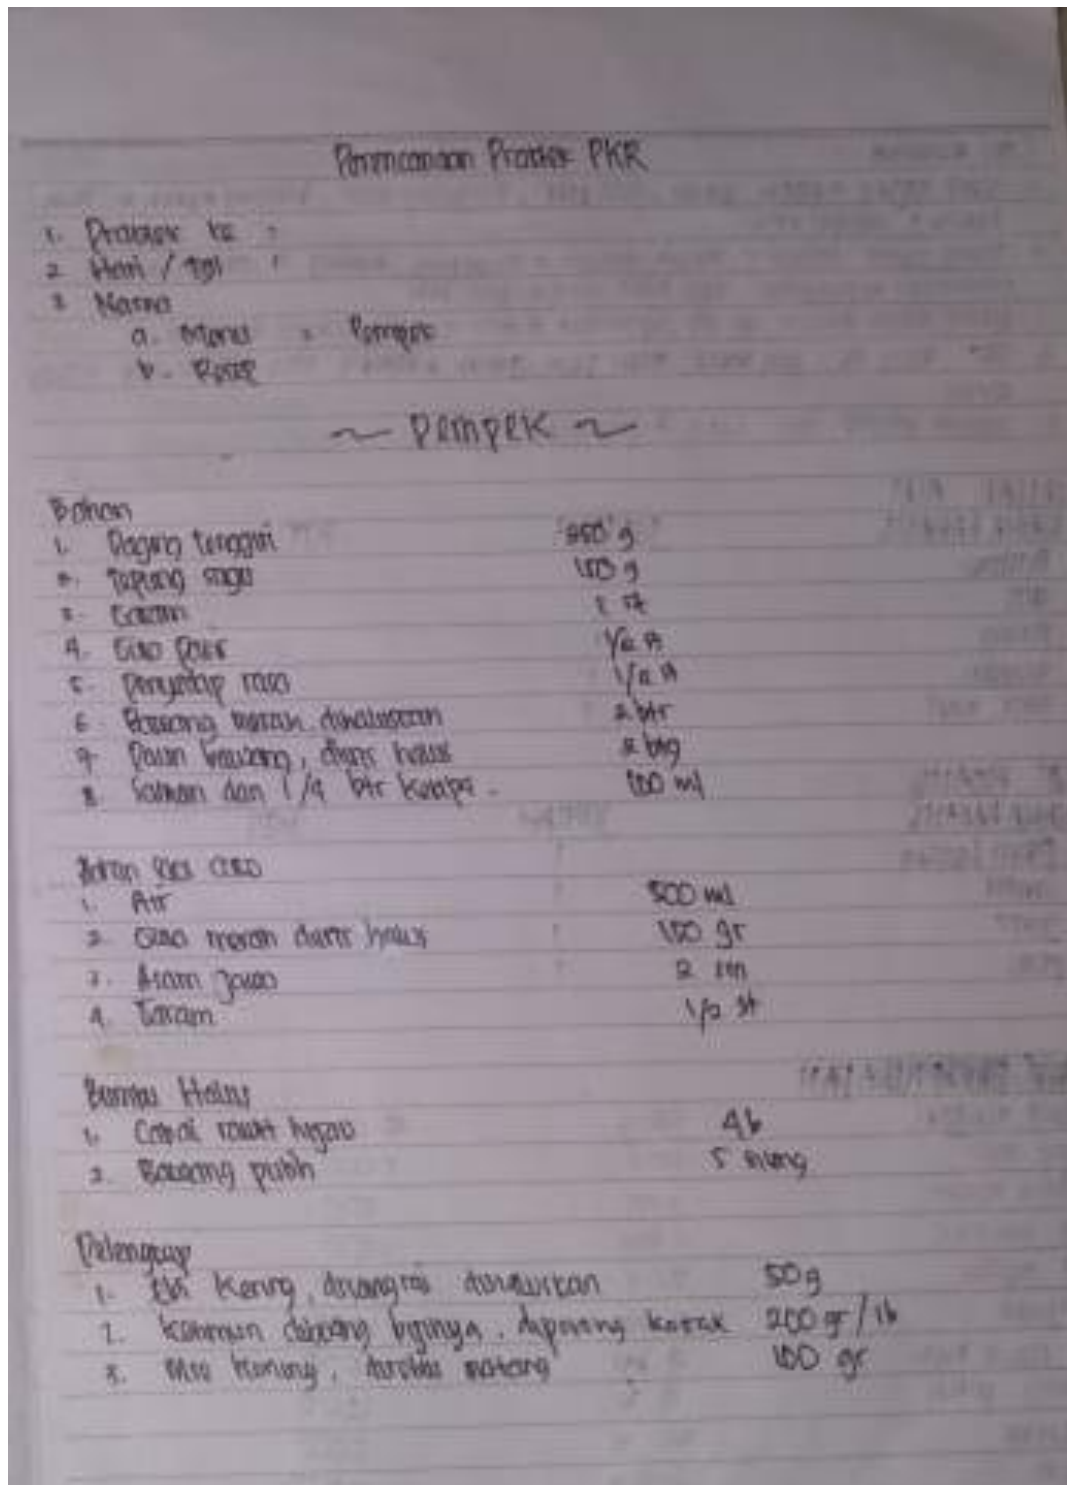 Perencanaan Praktek PKR
1. Praktek ke :
2. Hari / Tgl :
3. Nama
a. Menu : Pempek
b. Resep
~ Pempek ~
Bahan
1. Daging tenggiri
2. Tepung sagu
3. Garam
4. Gula pasir 1/2 st
5. Penyedap rasa 1/2 st
6. Bawang merah dihaluskan 2 btr
7. Daun bawang, diiris halus 2 btg
8. Santan dari 1/4 btr kelapa. 100 ml
Bahan
1. Air 500 ml
2. Gula merah diiris halus 150 gr
3. Asam jawa 2
4. Garam 1/2 st
Bumbu Halus
1. Cabai rawit hijau 4 b
2. Bawang putih 5 siung
Pelengkap
1. Ebi kering, disangrai dihaluskan 50 g
2. Ketimun dibuang bijinya, dipotong kotak 200 gr / 1b
3. Mie kuning, direbus matang 100 gr